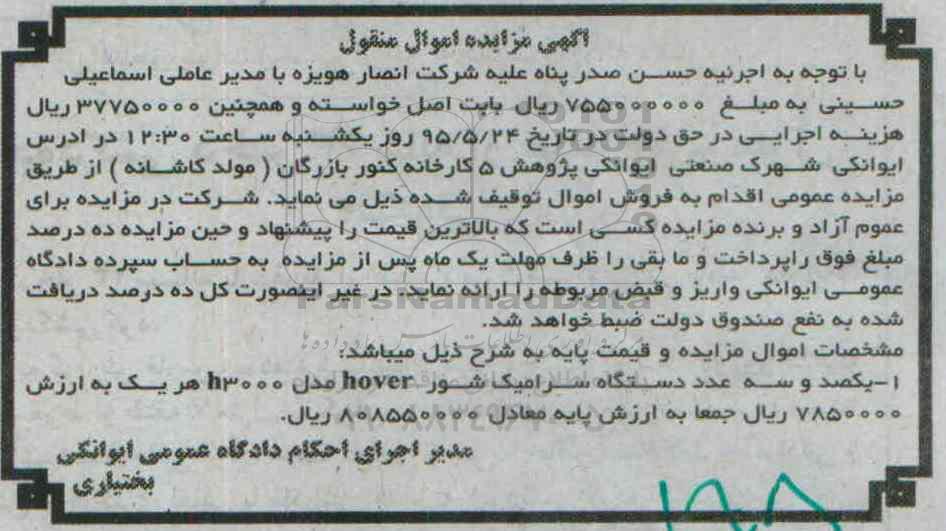 آگهی مزایده اموال منقول
با توجه به اجرئیه حسن صدر پناه علیه شرکت انصار هویزه با مدیر عاملی اسماعیلی
حسینی به مبلغ ۷۵۵۰۰۰۰۰۰ ریال بابت اصل خواسته و همچنین ۳۷۷۵۰۰۰۰ ریال
هزینه اجرایی در حق دولت در تاریخ ۹۵/۵/۲۴ روز یکشنبه ساعت ۱۲:۳۰ در ادرس
ایوانکی شهرک صنعتی ایوانکی پژوهش ۵ کارخانه کنور بازرگان ( مولد کاشانه ) از طریق
مزایده عمومی اقدام به فروش اموال توقیف شده ذیل می نماید. شرکت در مزایده برای
عموم آزاد و برنده مزایده کسی است که بالاترین قیمت را پیشنهاد و حین مزایده ده درصد
مبلغ فوق راپرداخت و ما بقی را ظرف مهلت یک ماه پس از مزایده به حساب سپرده دادگاه
عمومی ایوانکی واریز و قبض مربوطه را ارائه نماید، در غیر اینصورت کل ده درصد دریافت
ParsNamadData
شده به نفع صندوق دولت ضبط خواهد شد.
مشخصات اموال مزایده و قیمت پایه به شرح ذیل میباشد:
۱-یکصد و سه عدد دستگاه سرامیک شور hover مدل h۳۰۰۰ هر یک به ارزش
۷۸۵۰۰۰۰ ریال جمعا به ارزش پایه معادل ۸۰۸۵۵۰۰۰۰ ریال.
مدیر اجرای احکام دادگاه عمومی ایوانکی
بختیاری